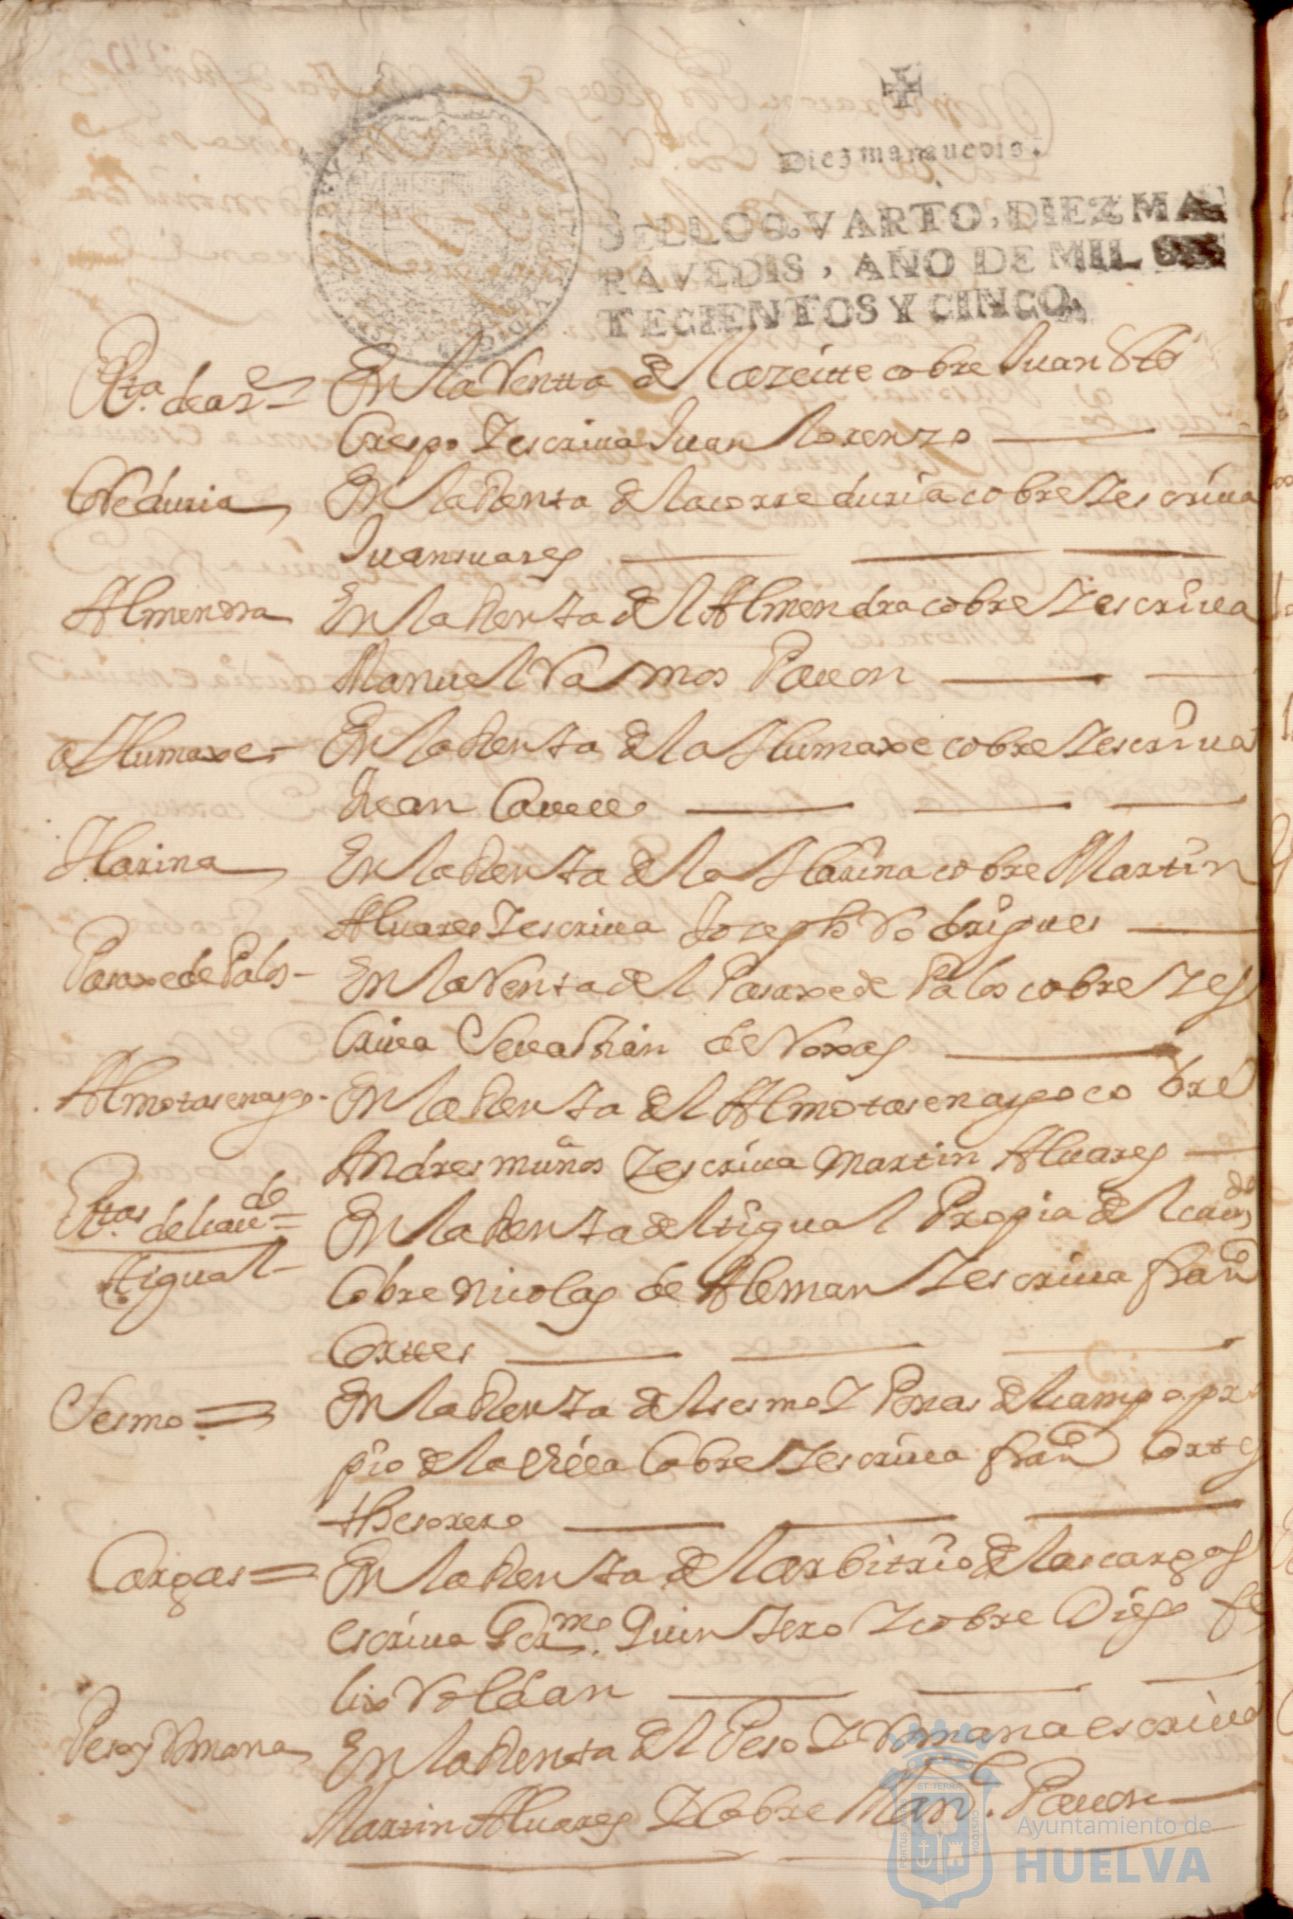 Diez marauedis.
SELLO QVARTO, DIEZ MA
RAVEDIS, AÑO DE MIL SE
TECIENTOS Y CINCO.
Rta. de az.e = En la Rentta del azeitte cobre Juan
Crespo Y escriua Juan Lorenzo
Correduria En la Renta de la correduria cobre Y escriua
Juan suares
Almendra En la Renta del Almendra cobre Y escriua
Manuel Ramos Pauon
Humaxe = En la Renta de la Humaxe cobre Y escriua
Juan
Harina En la Renta de la Harina cobre Martin
Aluares Y escriua Joseph Rodrigues
Pasaxe de Palos - En la Renta del Pasaxe de Palos cobre Y es
criua Seuastian de Roxas
Almotasenasgo - En la Renta del Almotasenasgo cobre
Andres muños Y escriua Martin Aluares
Rtas. del cau.do = En la Renta del tigual Propia del cau.do
tigual - Cobre Nicolas de Aleman Y escriua fran.co
Corttes
Sesmo = En la Renta del sesmo Y Penas del campo pro
pio de la Villa Cobre Y escriua fran.co Cortes
thesorero
Cargas = En la Renta del arbitrio de las cargas
escriua Quintero Y cobre Diego fe
lix Roldan
Peso y Romana En la Renta del Peso Y Romana escriua
Martin Aluares Y Cobre Man.l Pauon
Ayuntamiento de
HUELVA